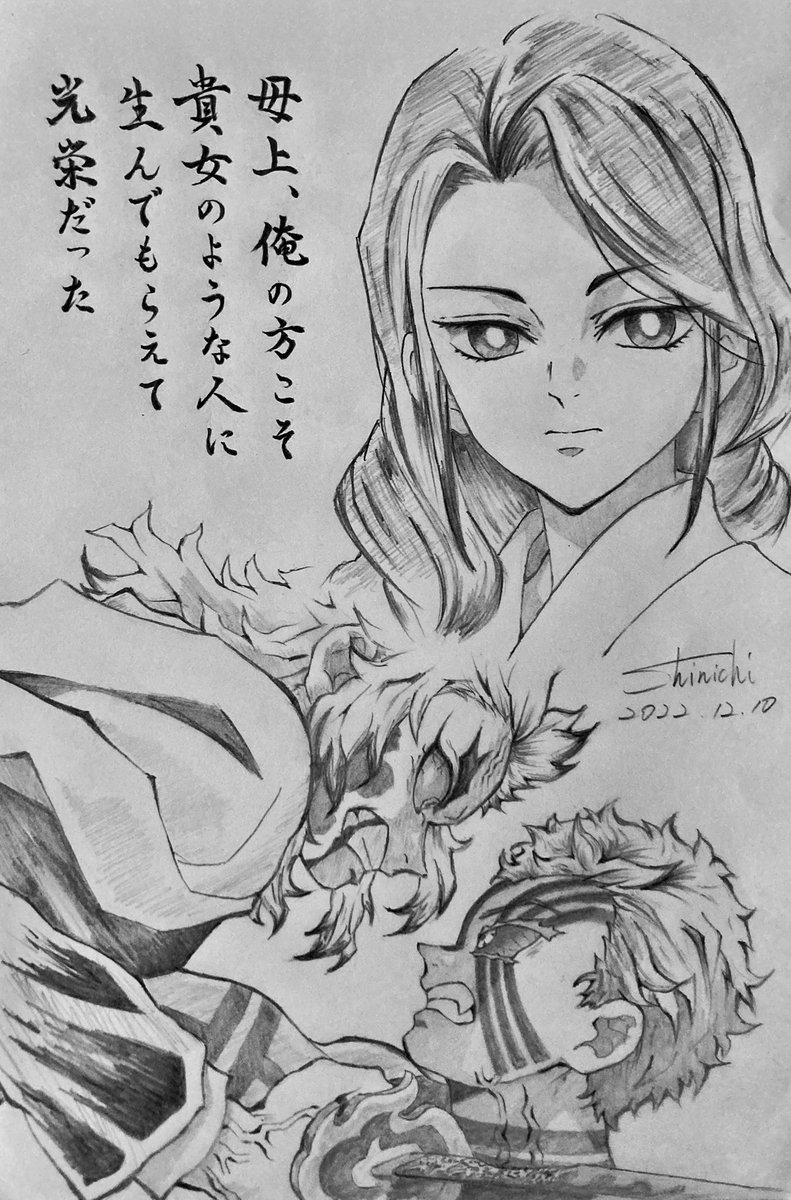 母上、俺の方こそ
貴女のような人に
生んでもらえて
光栄だった
Shinichi
2022.12.10